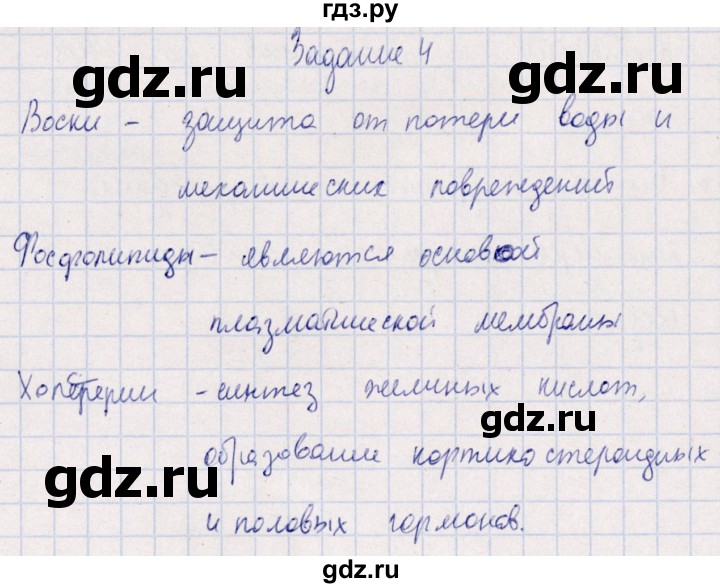 гдз.ру
Задание 4
gdz.ru gdz.ru
Воски – защита от потери воды и
механических повреждений
gdz.ru gdz.ru
Фосфолипиды – являются основой
плазматической мембраны
Холестерин – синтез желчных кислот,
gdz.ru
образование кортикостероидных
gdz.ru
и половых гормонов.
gdz.ru